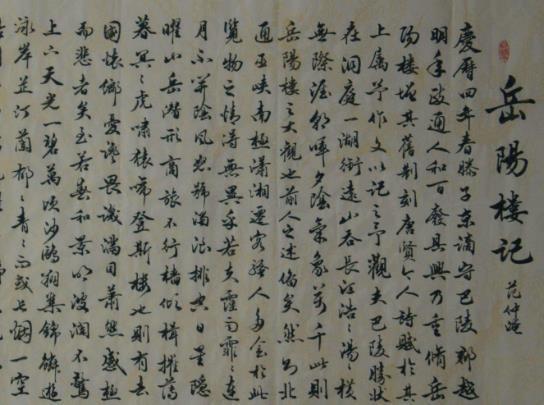 岳陽樓記
范仲淹
慶曆四年春滕子京謫守巴陵郡越
明年政通人和百廢具興乃重脩岳
陽樓增其舊制刻唐賢今人詩賦於其
上屬予作文以記之予觀夫巴陵勝狀
在洞庭一湖銜遠山吞長江浩〻湯〻橫
無際涯朝暉夕陰氣象萬千此則
岳陽樓之大觀也前人之述備矣然則北
通巫峽南極瀟湘遷客騷人多會於此
覽物之情得無異乎若夫霪雨霏〻連
月不開陰風怒號濁浪排空日星隱
曜山岳潛形商旅不行檣傾楫摧薄
暮冥〻虎嘯猿啼登斯樓也則有去
國懷鄉憂讒畏譏滿目蕭然感極
而悲者矣至若春和景明波瀾不驚
上下天光一碧萬頃沙鷗翔集錦鱗游
泳岸芷汀蘭郁〻青〻而或長煙一空